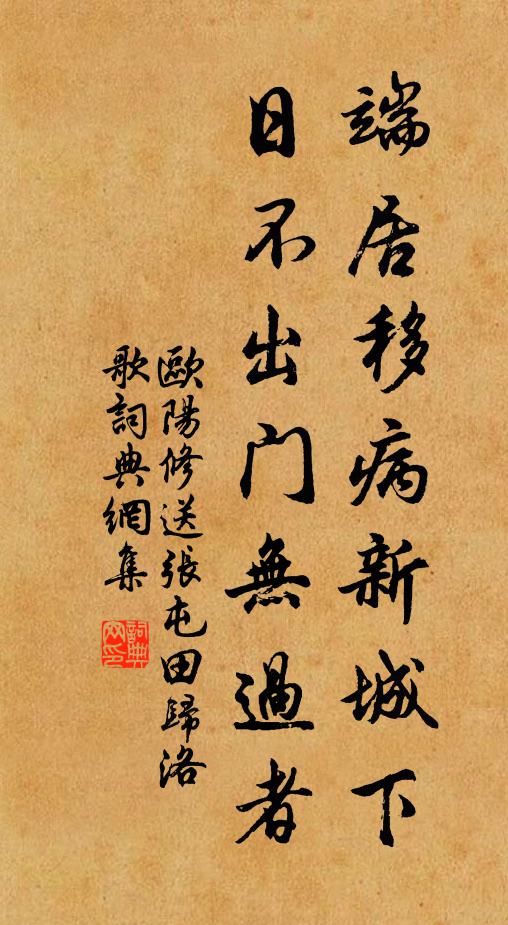 端居移病新城下
日不出门無過者
歐陽修送張屯田歸洛
歌詞典網集
詞典網印